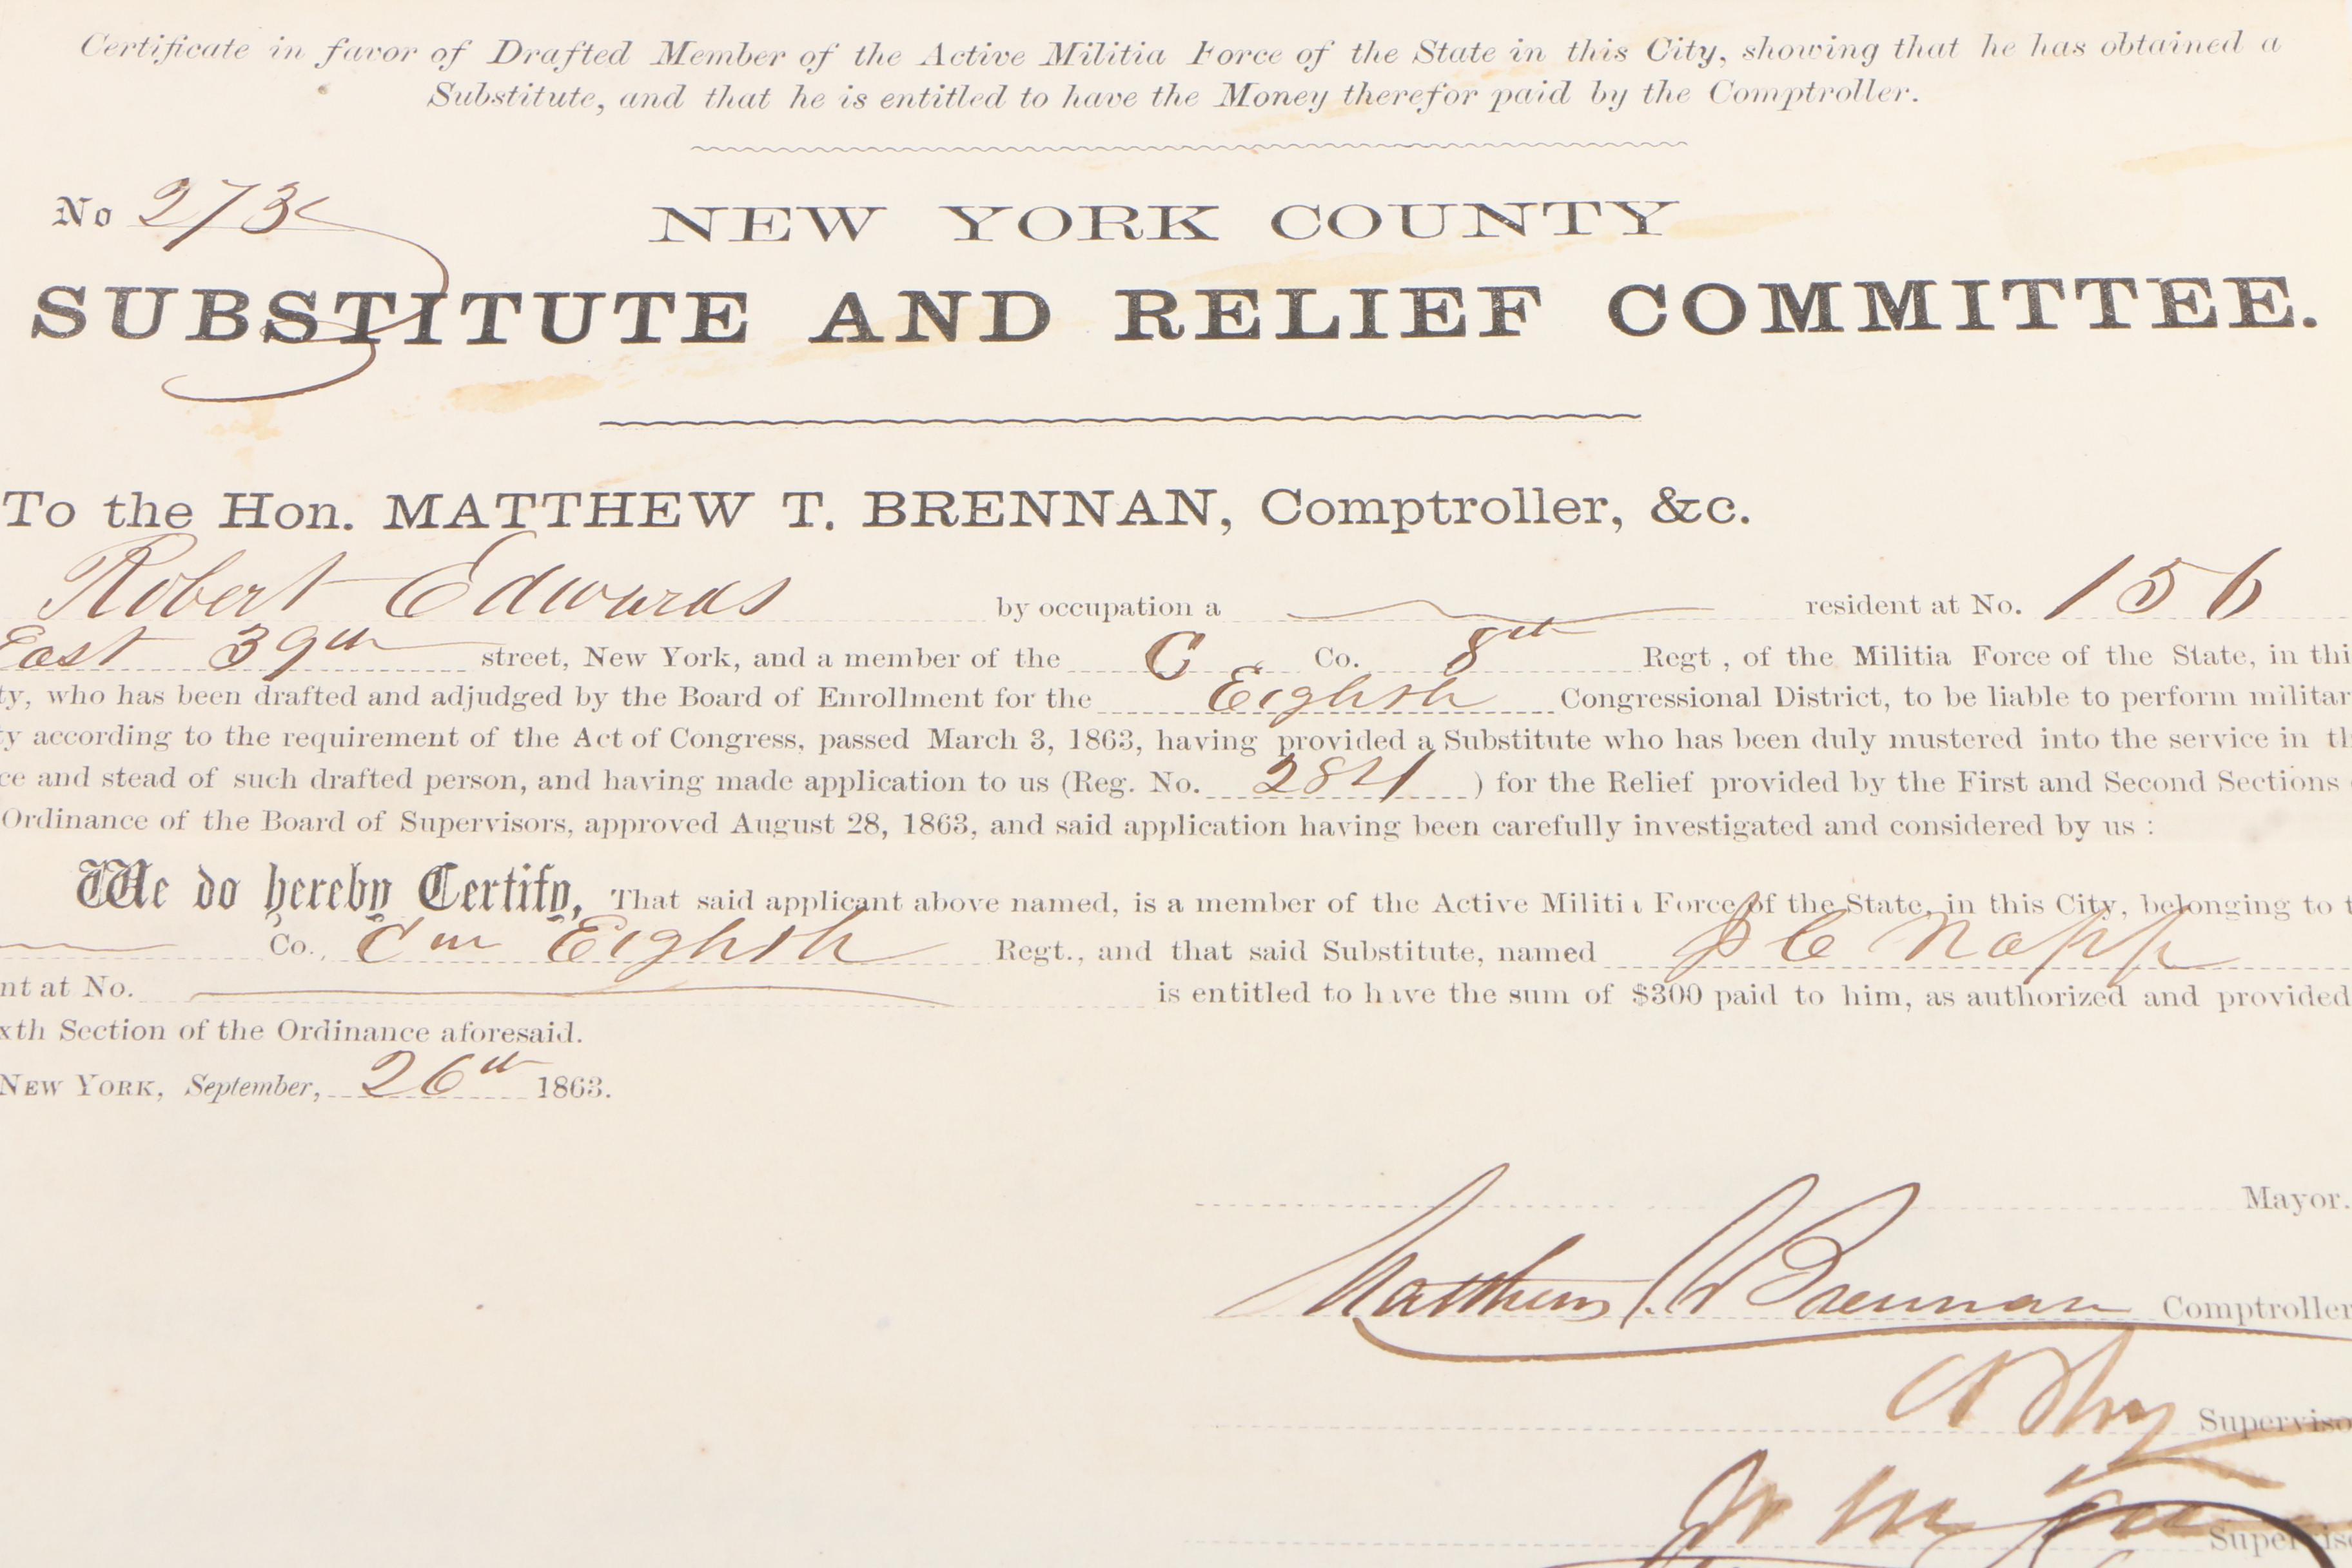 Certificate in favor of Drafted Member of the Active Militia Force of the State in this City, showing that he has obtained a
Substitute, and that he is entitled to have the Money therefor paid by the Comptroller.
No 273
NEW YORK COUNTY
SUBSTITUTE AND RELIEF COMMITTEE.
To the Hon. MATTHEW T. BRENNAN, Comptroller, &c.
Robert Edwards by occupation a resident at No. 156
East 39th street, New York, and a member of the C Co. 8th Regt , of the Militia Force of the State, in thi
ty, who has been drafted and adjudged by the Board of Enrollment for the Eighth Congressional District, to be liable to perform militar
y according to the requirement of the Act of Congress, passed March 3, 1863, having provided a Substitute who has been duly mustered into the service in th
ce and stead of such drafted person, and having made application to us (Reg. No. 284 ) for the Relief provided by the First and Second Sections
Ordinance of the Board of Supervisors, approved August 28, 1863, and said application having been carefully investigated and considered by us :
We do hereby Certify, That said applicant above named, is a member of the Active Militi Force of the State, in this City, belonging to t
Co., Eighth Regt., and that said Substitute, named
nt at No. is entitled to have the sum of $300 paid to him, as authorized and provided
xth Section of the Ordinance aforesaid.
NEW YORK, September, 26th 1863.
Mayor.
Matthew T Brennan Comptroller
Superviso
Supervis